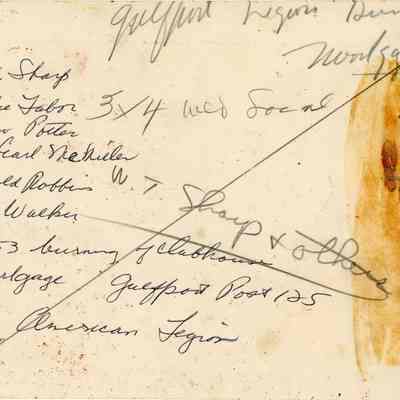 Gulfport Legion Bur
Mortga
Sharp
Tabor
3x4 Wed Social
Potter
Pearl McMiler
Robbins W. T
Sharp & others
Walker
53 burning of clubhouse
rtgage Gulfport Post 125
American Legion